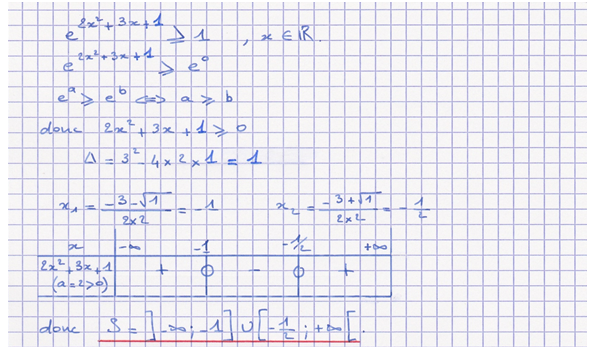 e^{2x²+3x+1} ≥ 1 , x ∈ ℝ.
e^{2x²+3x+1} ≥ e⁰
e^a ≥ e^b ⟺ a ≥ b
donc 2x²+3x+1 ≥ 0
Δ = 3² - 4×2×1 = 1
x₁ = (-3-√1)/(2×2) = -1 x₂ = (-3+√1)/(2×2) = -1/2
x -∞ -1 -1/2 +∞
2x²+3x+1 + 0 - 0 +
(a=2>0)
donc S = ]-∞; -1] ∪ [-1/2; +∞[.